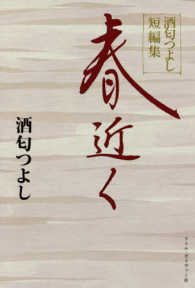 酒匂つよし
短編集
春近く
酒匂つよし